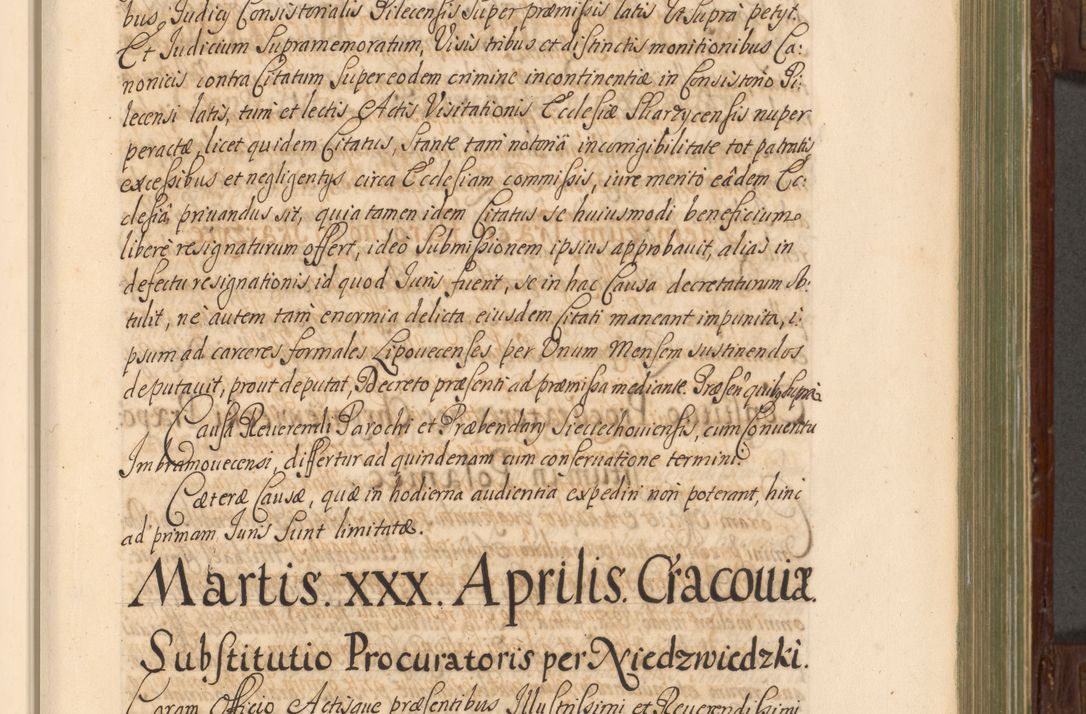 bus, Judicÿ Consistorialis Pilecensis super præmissis latis ut supra petÿt.
Et Judicium supramemoratum, Visis tribus et distinctis monitionibus Ca:
nonicis contra Citatum super eodem crimine incontinentiæ in Consistorio Pi:
lecensi latis, tum et lectis Actis Visitationis Ecclesiæ Skarzycensis nuper
peractæ, licet quidem Citatus, stante tam notoriâ incorrigibilitate tot patratis
excessibus et negligentÿs circa Ecclesiam commissis, iure merito eâdem Ec:
clesiâ priuandus sit, quia tamen idem Citatus se huiusmodi beneficium
libere resignaturum offert, ideo submissionem ipsius approbauit, alias in
defectu resignationis, id quod Juris fuerit, se in hac Causa decretaturum ob:
tulit, ne autem tam enormia delicta eiusdem Citati maneant impunita, i:
psum ad carceres formales Lipouecenses per Unum Mensem sustinendos
deputauit, prout deputat, Decreto præsenti ad præmissa mediante. Præsen. quibus supra
Causa Reuerendi Parochi et Præbendarÿ Sieciechouiensis, cum Conuentu
Imbramouecensi, differtur ad quindenam cum conseruatione termini.
Cæteræ Causæ, quæ in hodierna audientia expediri non poterant, hinc
ad primam Juris sunt limitatæ.
Martis. XXX. Aprilis. Cracouiæ.
Substitutio Procuratoris per Niedzwiedzki.
Coram Officio Actisque præsentibus Illustrissimi et Reuerendissimi